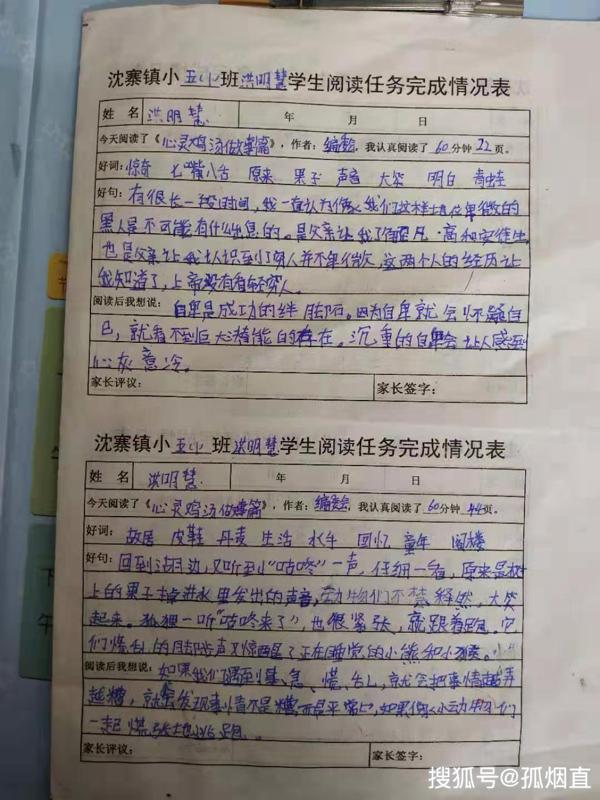 沈寨镇小五小班洪明慧学生阅读任务完成情况表
姓 名 洪明慧 年 月 日
今天阅读了《心灵鸡汤做事篇》，作者：编委会，我认真阅读了60分钟22页。
好词：惊奇 七嘴八舌 原来 果子 声音 大笑 明白 青蛙
好句：有很长一段时间，我一直认为像我们这样地位卑微的
黑人是不可能有什么出息的。是父亲让我了解凡·高和安徒生，
也是父亲让我认识到了穷人并不卑微，这两个人的经历让
我知道了，上帝没有看轻穷人。
阅读后我想说：自卑是成功的绊脚石。因为自卑就会怀疑自
己，就看不到巨大潜能的存在。沉重的自卑会让人感到
心灰意冷。
家长评议： 家长签字：
沈寨镇小五小班洪明慧学生阅读任务完成情况表
姓 名 洪明慧 年 月 日
今天阅读了《心灵鸡汤做事篇》，作者：编委会，我认真阅读了60分钟44页。
好词：故居 皮鞋 丹麦 生活 水牛 回忆 童年 阁楼
好句：回到湖边，又听到"咕咚"一声，仔细一看，原来是树
上的果子掉进水里发出的声音，动物们不禁释然，大笑
起来。狐狸一听"咕咚来了"，也很紧张，就跟着跑。它
们慌乱的脚步声又惊醒了正在睡觉的小熊和小猴。
阅读后我想说：如果我们遇到事，急、慌、乱，就会把事情越弄
越糟，就会发现事情不是糟，而是平常，如果像小动物们
一起慌张地跑。
家长评议： 家长签字：
搜狐号@孤烟直